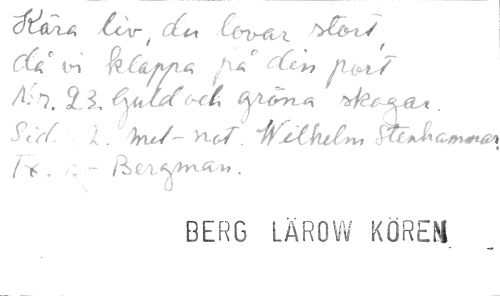 Kära liv, du lovar stort,
då vi klappa på din port
Nr. 23. Guld och gröna skogar.
Sid. 2. mel-not. Wilhelm Stenhammar.
Tx. Bergman.
BERG LÄROW KÖREN